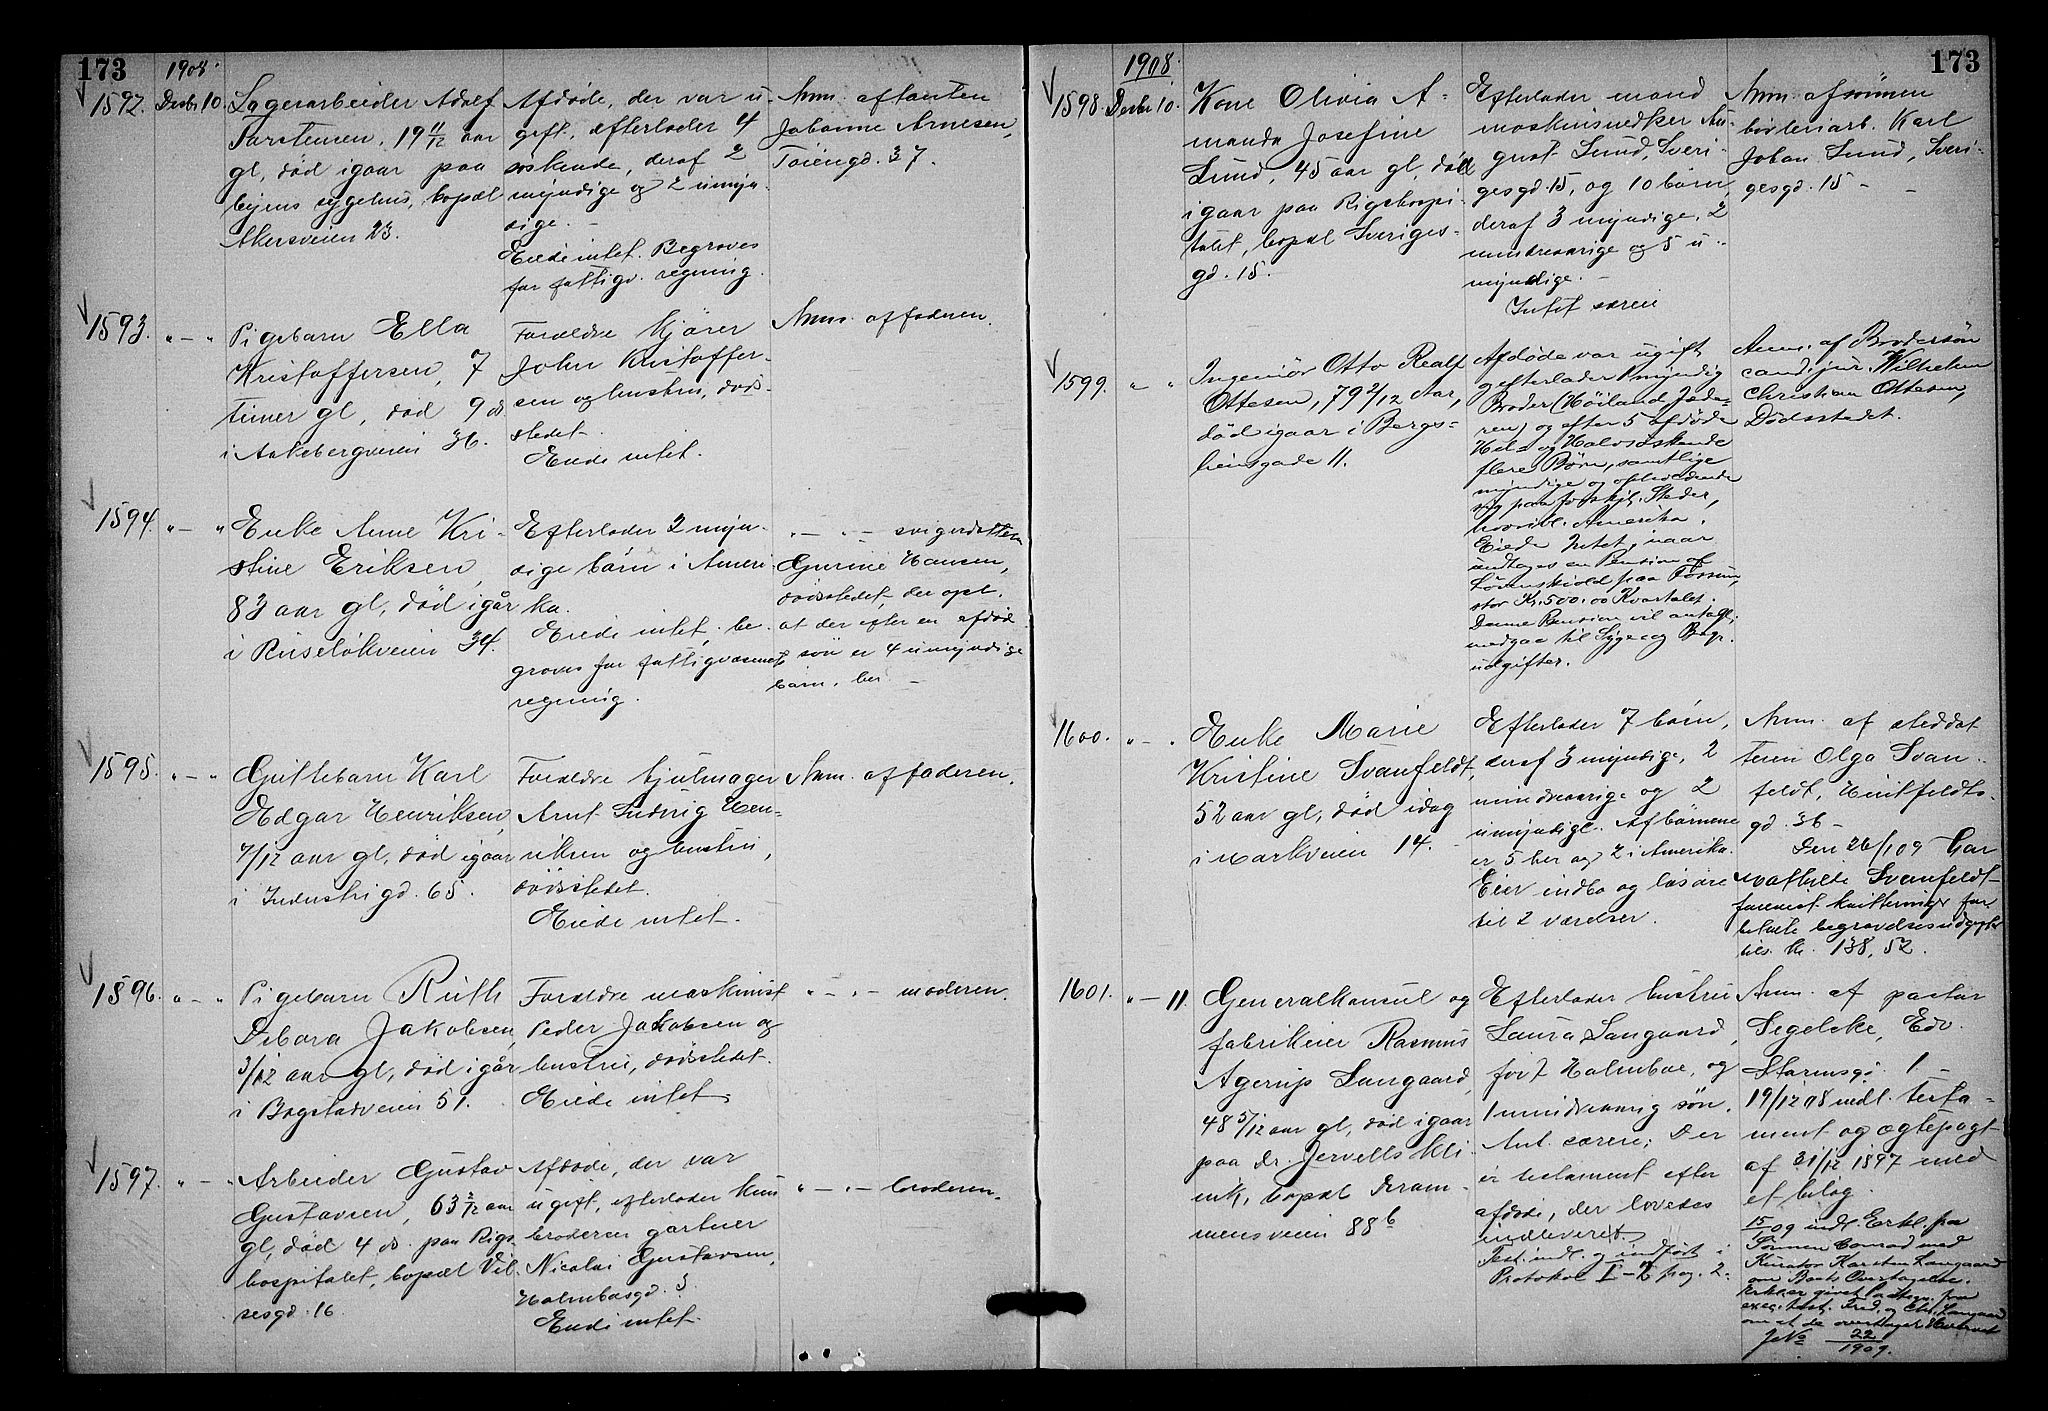 173
1908
1592. Desbr 10. Lagerarbeider Adolf
Torstensen, 19 11/12 aar
gl, død igaar paa
byens sygehus, bopæl
Akersveien 23.
Afdøde, der var u-
gift, efterlader 4
søskende, deraf 2
myndige og 2 umyn-
dige. -
Eiede intet. Begraves
for fattigv. regning.
Anm. af tanten
Johanne Arnesen,
Tøiengd. 37.
1593. " — " Pigebarn Ella
Kristoffersen, 7
timer gl, død 9 ds
i Aakebergveien 36.
Forældre kjører
John Kristoffer-
sen og hustru, døds-
stedet.
Eiede intet.
Anm. af faderen.
1594. " — " Enke Anne Kri-
stine Eriksen,
83 aar gl, død igår
i Ruseløkveien 34.
Efterlader 2 myn-
dige børn i Ameri-
ka.
Eiede intet, be-
graves for fattigvæsenets
regning.
" — " — svigerdatteren
Gurine Hansen,
dødsstedet, der opl.
at der efter en afdød
søn er 4 umyndige
børn, her. —
1595. " — " Guttebarn Karl
Edgar Henriksen,
7/12 aar gl, død igaar
i Industrigd. 65.
Forældre hjulmager
Arnt Ludvig Hen-
riksen og hustru,
dødsstedet.
Eiede intet.
Anm. af faderen.
1596. " — " Pigebarn Ruth
Debora Jakobsen,
3/12 aar gl, død igår
i Bogstadveien 51.
Forældre maskinist
Peder Jakobsen og
hustru, dødsstedet.
Eiede intet.
" — " — moderen.
1597. " — " Arbeider Gustav
Gustavsen, 63 2/12 aar
gl, død 4 ds. paa Rigs-
hospitalet, bopæl Vil-
sesgd. 16
Afdøde, der var
ugift, efterlader kun
broderen gartner
Nicolai Gustavsen,
Holmboesgd. 3
Eiede intet.
" — " — broderen.
173
1908.
1598. Desbr 10. Kone Olivia A-
manda Josefine
Lund, 45 aar gl, død
igaar paa Rigshospi-
talet, bopæl Sveriges-
gd. 15.
Efterlader mand
maskinsnedker Au-
gust Lund, Sveri-
gesgd. 15, og 10 børn,
deraf 3 myndige, 2
mindreaarige og 5 u-
myndige. -
Intet særeie
Anm. af sønnen
børsteriarb. Karl
Johan Lund, Sveri-
gesgd. 15 -
1599. " — " Ingeniør Otto Realf
Ottesen, 79 2/12 Aar,
død igaar i Bergs-
liensgade 11.
Afdøde var ugift
og efterlader 1 myndig
Broder (Høiland Jæde-
ren) og efter 5 afdøde
Hel- og Halvsøskende
flere Børn, samtlige
myndige og opholdende
sig paa forskjl. Steder,
hovedsl. Amerika.
Eiede Intet, naar
undtages en Pension af
Løvenskiold paa Fossum,
stor Kr. 500.00 Kvartalet.
Denne Pension vil antagl.
medgaa til Syge- og Begr.
udgifter.
Anm. af Brodersøn
cand. jur. Wilhelm
Christian Ottesen,
Dødsstedet.
1600. " — " Enke Marie
Kristine Svanfeldt,
52 aar gl, død idag
i Markveien 14.
Efterlader 7 børn,
deraf 3 myndige, 2
mindreaarige og 2
umyndige. Af børnene
er 5 her og 2 i Amerika.
Eier indbo og løsøre
til 2 værelser.
Anm. af steddat-
teren Olga Svan-
feldt, Heitfeldts-
gd. 36 -
Den 26/1 09 har
Mathilde Svanfeldt
forevist kvitteringer for
betalte begravelsesudgifter
tils. kr. 138,52.
1601. " — 11. Generalkonsul og
fabrikeier Rasmus
Agerup Langaard,
48 5/12 aar gl, død igaar
paa Dr. Jervells kli-
nik, bopæl Dram-
mensveien 88b
Efterlader hustru
Laura Langaard,
født Holmboe, og
1 mindreaarig søn.
Ant. særeie; Der
er testament efter
afdøde, der lovedes
indleveret.
Test. indl. og indført i
Protokol I - 2 pag. 2-
Anm. af pastor
Segelcke, Edv.
Stormsgd. 1 -
19/12 08 indl. testa-
ment og ægtepagt
af 31/12 1897 med
et bilag.
15/1 09 indl. Erkl. fra
Sønnen Conrad med
Kurator Karsten Langaard
om Boets Overtagelse.
Erklær. givet Paategn. fra
exec. test. Fred. og Chr. Langaard
om at de overtager Hvervet
J. No 22/1909.